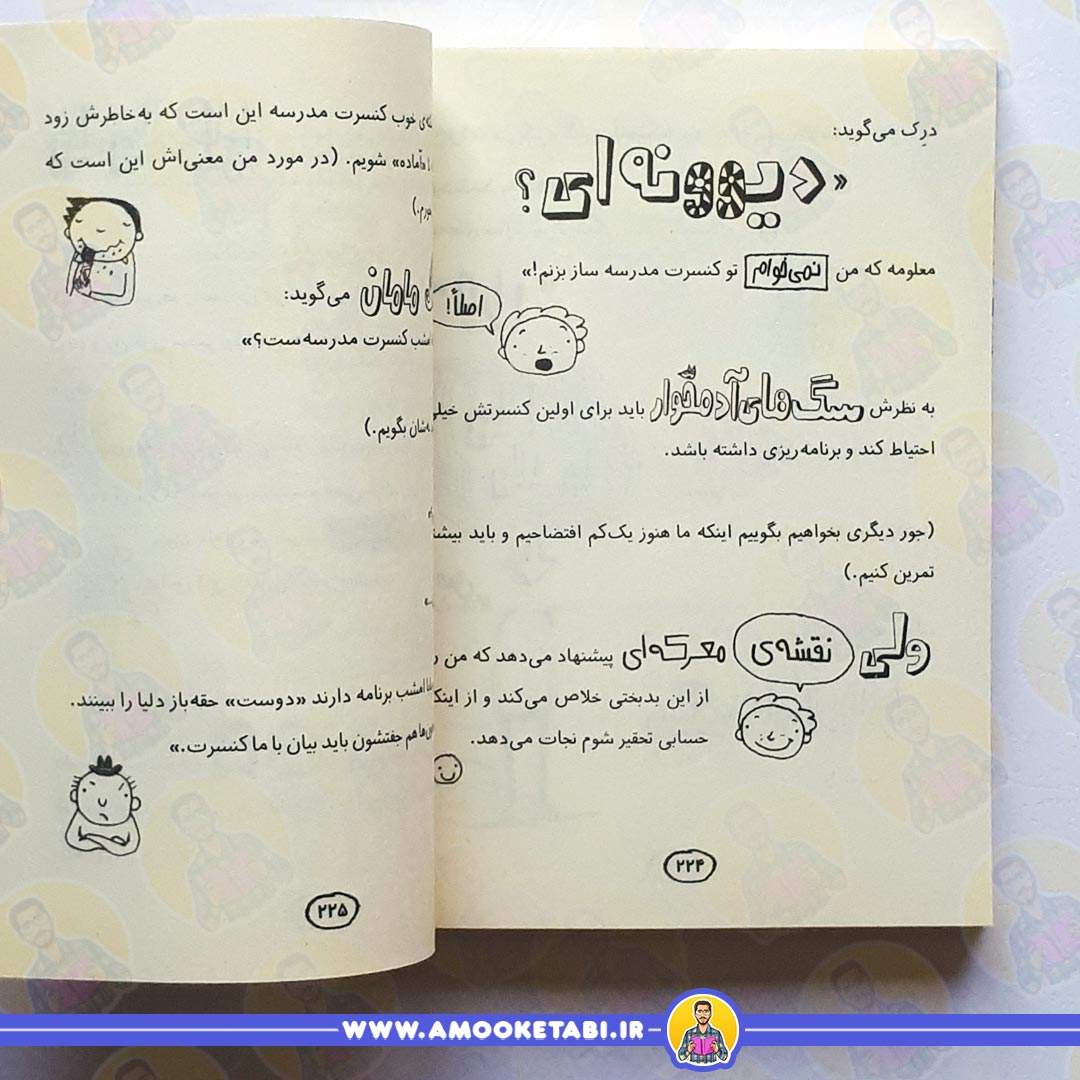 درِک می‌گوید:
«دیوونه‌ای؟
معلومه که من نمی‌خوام تو کنسرت مدرسه ساز بزنم!»
اصلاً!
به نظرش سگ‌های آدمخوار باید برای اولین کنسرتش خیلی
احتیاط کند و برنامه‌ریزی داشته باشد.
(جور دیگری بخواهیم بگوییم اینکه ما هنوز یک‌کم افتضاحیم و باید
تمرین کنیم.)
ولی نقشه‌ی معرکه‌ای پیشنهاد می‌دهد که من
از این بدبختی خلاص می‌کند و از
حسابی تحقیر شوم نجات می‌دهد.
۲۲۴
خوب کنسرت مدرسه این است که به‌خاطرش زود
«آماده» شویم. (در مورد من معنی‌اش این است که
مامان می‌گوید:
کنسرت مدرسه‌ست؟»
بگویم.)
امشب برنامه دارند «دوست» حقه‌باز دلیا را ببینند.
هم جفتشون باید بیان با ما کنسرت.»
۲۲۵
WWW.AMOOKETABI.IR